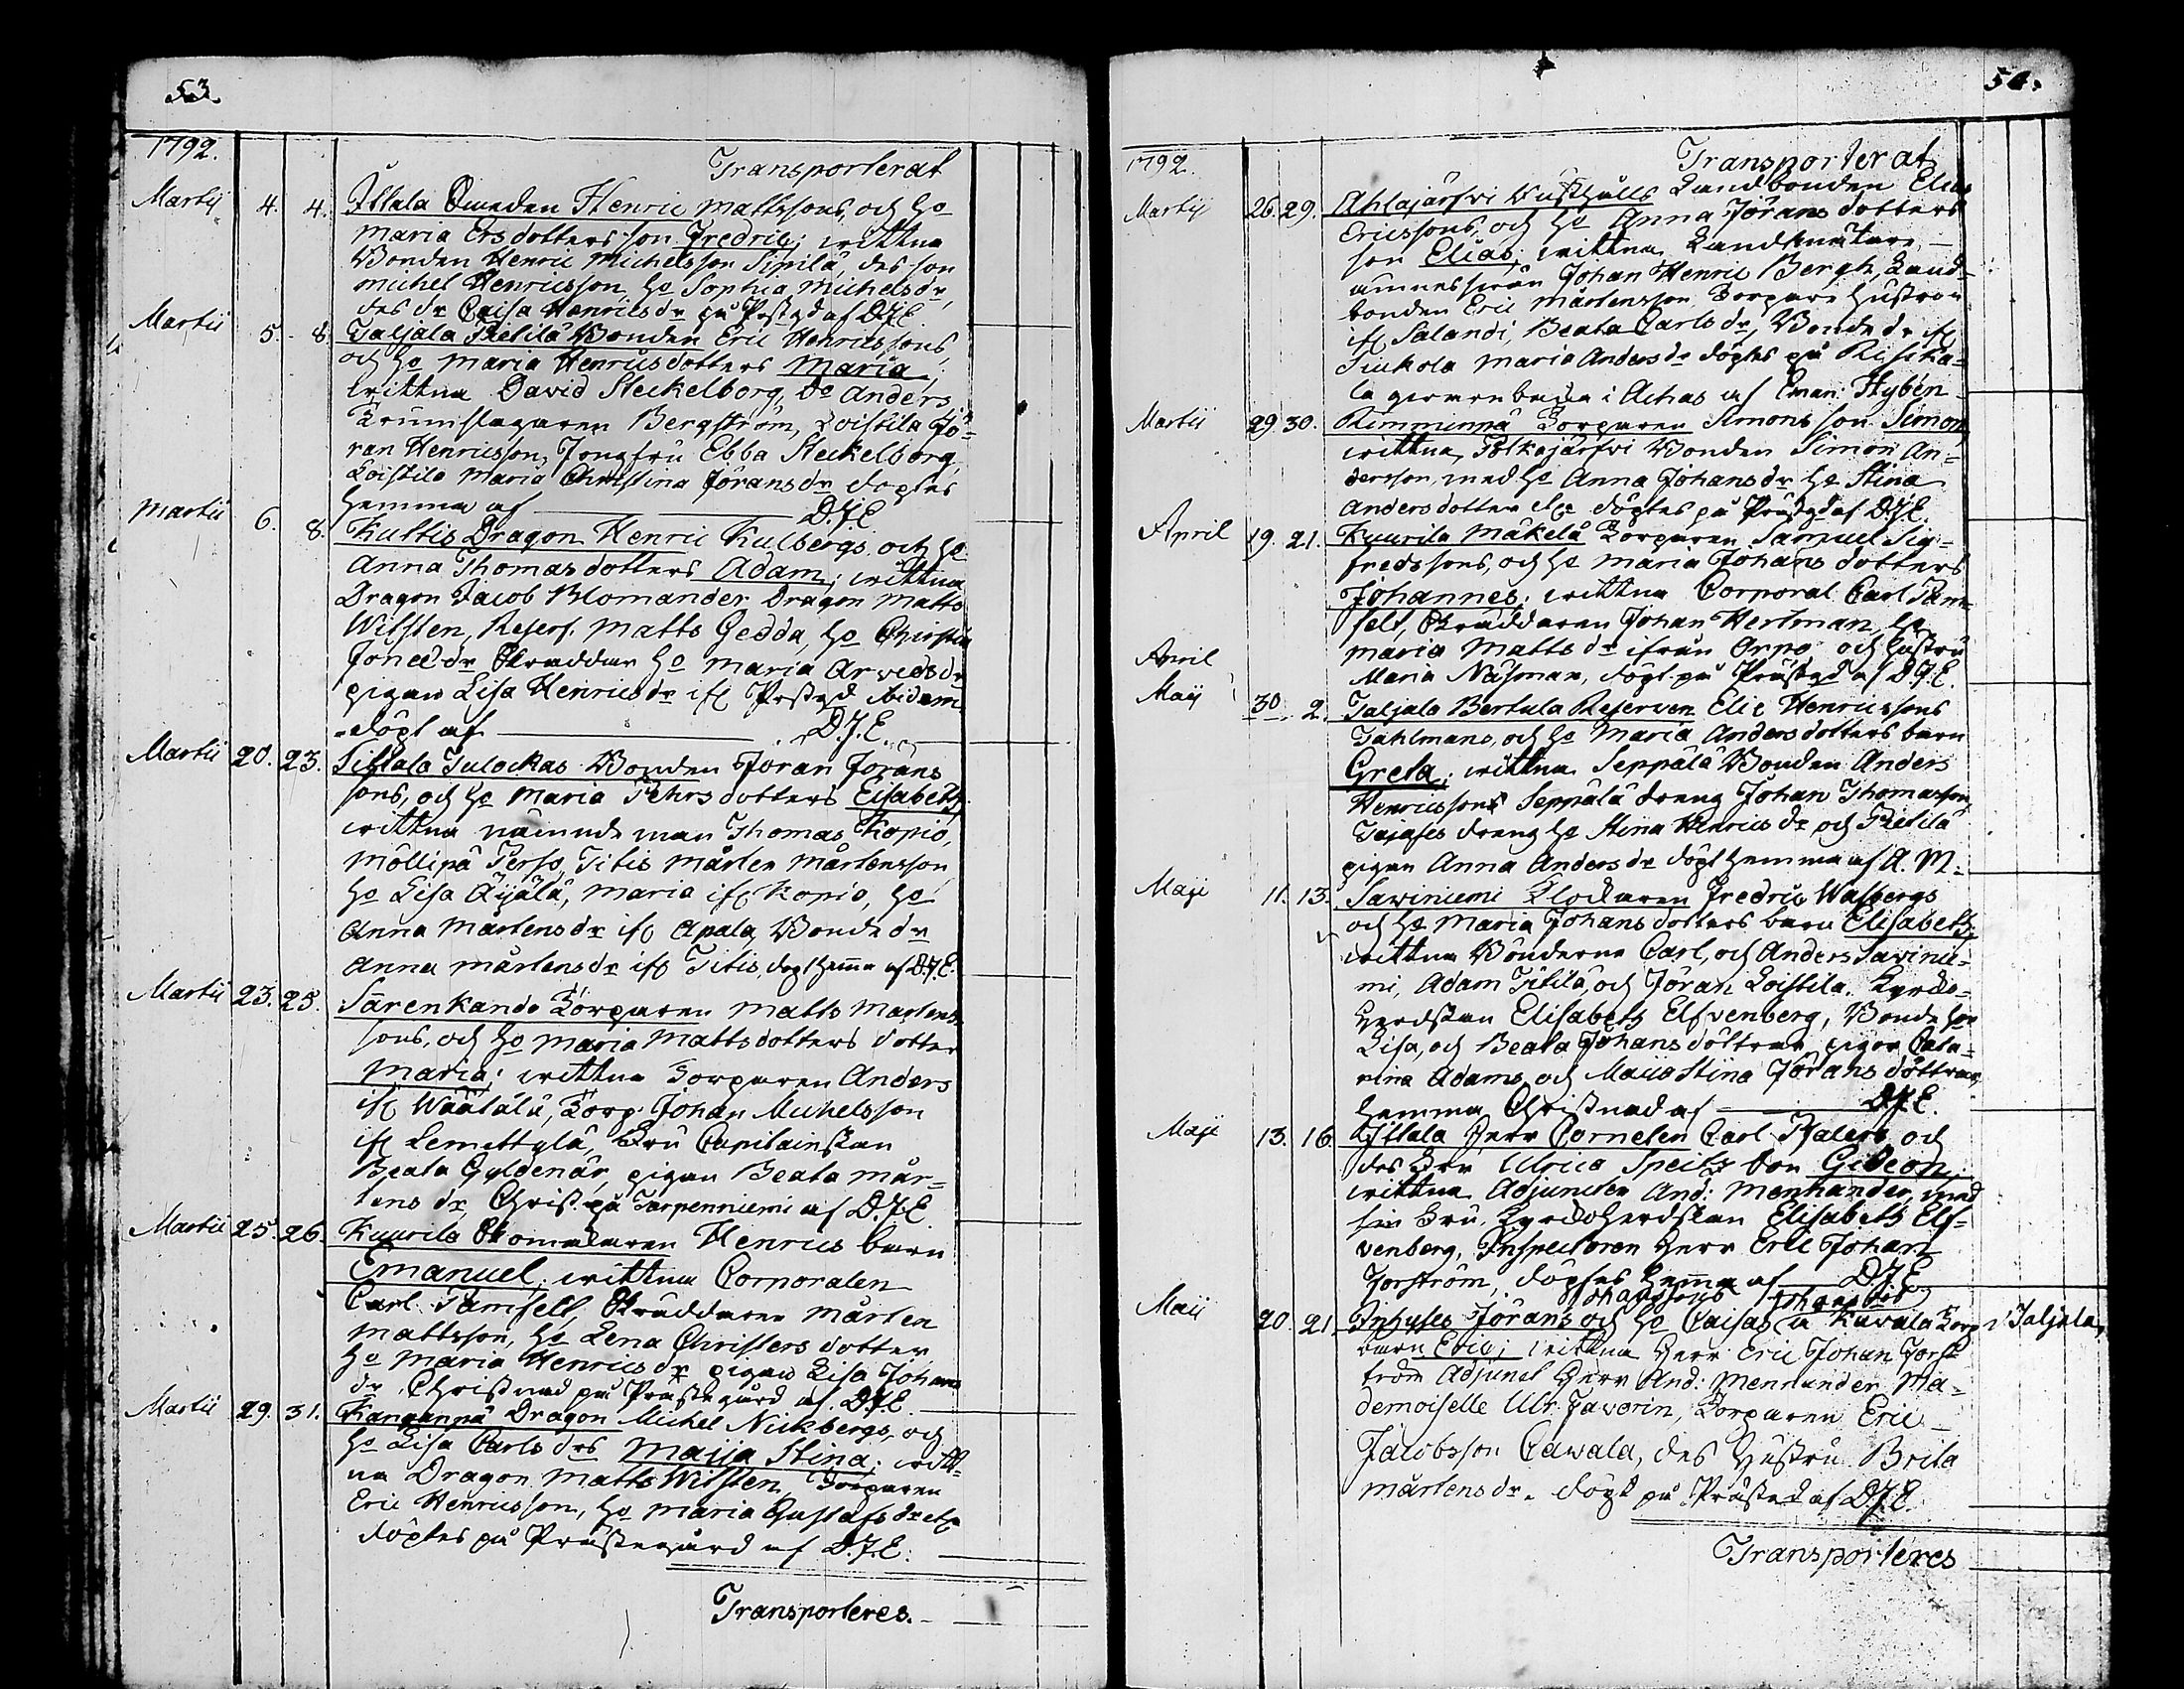 53.
1792.
Transporterat
Martij 4. 4. Ittala Smeden Henric Mattssons, och ho
Maria Ersdotters son Fredric; wittna
Bonden Henric Michelsson Sipilä, des son
Michel Henricsson, ho Sophia Michelsdr,
des dr Caisa Henricsdr på Prestgd af DJE
Martii 5. 8. Taljala Pietilä Bonden Eric Henricssons
och ho Maria Henricsdotters Maria;
wittna David Steckelborg, Do Anders
Trumslagaren Bergström, Loistila Jö-
ran Henricsson, Jongfru Ebba Steckelborg,
Loistila Maria Christina Jöransdr döptes
hemma af D.J.E
Martii 6. 8. Kultis Dragon Henric Kulbergs och ho
Anna Thomasdotters Adam; wittna
Dragon Jacob Blomander Dragon Matts
Wilsten, Reserf. Matts Gedda, ho Christin
Jonædr Skraddar ho Maria Arvedsdr
pigan Lisa Henricsdr ifr Prestgd ibidem
döpt af D.J.E.
Martii 20. 23. Sillala Tulockas Bonden Jöran Jörans
sons, och ho Maria Pehrsdotters Elsabeth
wittna nämndeman Thomas Kopio,
Möllipä Perss, Titis Mårten Mårtensson
ho Lisa Äijälä, Maria ifr Kopio, ho
Anna Mårtensdr ifr Apala, Bonde dr
Anna Mårtensdr ifr Titis, döpt hema af D.J.E.
Martii 23. 25. Särenkando Torparen Matts Martens
sons, och ho Maria Mattsdotters dotter
Maria; wittna Torparen Anders
ifr Wäätälä, Torp. Johan Michelsson
ifr Lemettylä, Fru Capitainskan
Beata Gyldenär, pigan Beata Mår-
tensdr, Christ. på Tarpenniemi af D.J.E.
Martii 25. 26. Kuurila Skomakaren Henrics barn
Emanuel; wittna Corporalen
Carl Tamfelt, Skräddaren Mårten
Mattsson, ho Lena Christersdotter
ho Maria Henricsdr pigan Lisa Johans
dr. Christnad på Prästegård af D.J.E.
Martii 29. 31. Kanganpä Dragon Michel Nickbergs, och
ho Lisa Carlsdrs Maija Stina; witt-
na Dragon Matts Wilsten, Torparen
Eric Henricsson, ho Maria Gustafsdr etc
döptes på Prästegård af D.J.E.
Transporteres.
54.
1792.
Transporterat
Martij 26. 29. Ahlajärfvi Rusthålls Landbonden Elias
Ericssons, och ho Anna Jöransdotters
son Elias; wittna Landtmätare
ämnessven Johan Henric Bergh, Land-
bonden Eric Mårtensson Torpare Hustrun
ifr Salandi, Beata Carlsdr, Bonde dr ifr
Tiukola Maria Andersdr döptes på
la i Achas af Eman: Hybén
Martii 29. 30. Rimminnä Torparen Simons son Simon,
wittna Pitkäjärfvi Bonden Simon An-
dersson, med ho Anna Johansdr ho Stina
Andersdotter etc döptes på Prästgd af D.J.E.
April 19. 21. Kuurila Mäkelä Torparen Samuel Sig-
fredssons, och ho Maria Johansdotters
Johannes; wittna Corporal Carl Tam-
felt, Skräddaren Johan Hertman, ho
Maria Mattsdr ifrån Arpo och hustru
Maria Näsman, döpt på Prästgd af D.J.E.
April
Maij 30 2. Taljala Bertula Reserven Elie Henricssons
Tahlmans, och ho Maria Andersdotters barn
Greta; wittna Seppälä Bonden Anders
Henricssons Seppälä dreng Johan Thomasson,
Tajafes dreng ho Stina Henricsdr och Pietilä
pigan Anna Andersdr döpt hemma af A. M.
Maji 11. 13. Sawiniemi Klockaren Fredric Walbergs
och ho Maria Johansdotters barn Elisabeth;
wittna Bönderne Carl, och Anders Savinie-
mi, Adam Titilä, och Jöran Loistila. Kyrko-
herdskan Elisabeth Elfvenberg, Bonde hor
Lisa, och Beata Johansdöttrar, pigor Cata-
rina Adams, och Maija Stina Jöransdöttrar,
hemma Christnad af D.J.E.
Maji 13. 16. Ittala Herr Corneten Carl Palers och
des Fru Ulrica Speitz son Gideon;
wittna Adjuncten And: Menhander, med
sin Fru, Kyrkoherdskan Elisabeth Elf-
venberg, Inspectoren Herr Eric Johan
Forström, döptes hema af D.J.E
Maij 20. 21. Inhyses Jörans Johanssons och ho Caisas Johansdr a Kawala Torp i Taljala,
barn Eric; wittna Herr Eric Johan Forst
tröm Adjunct Herr And: Mennander, Ma-
demoiselle Ulr. Taworin, Torparen Eric
Jacobsson Cawala, des Hustru Brita
Mårtensdr. döpt på Prästgd af D.J.E.
Transporteres